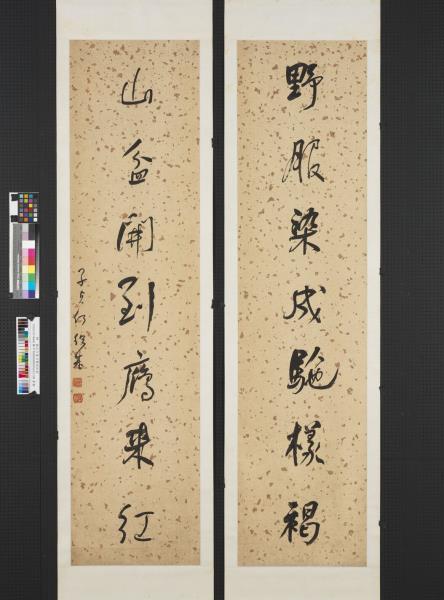 野服染成駝樣褐
山盆開到鴈來紅
子貞何紹基